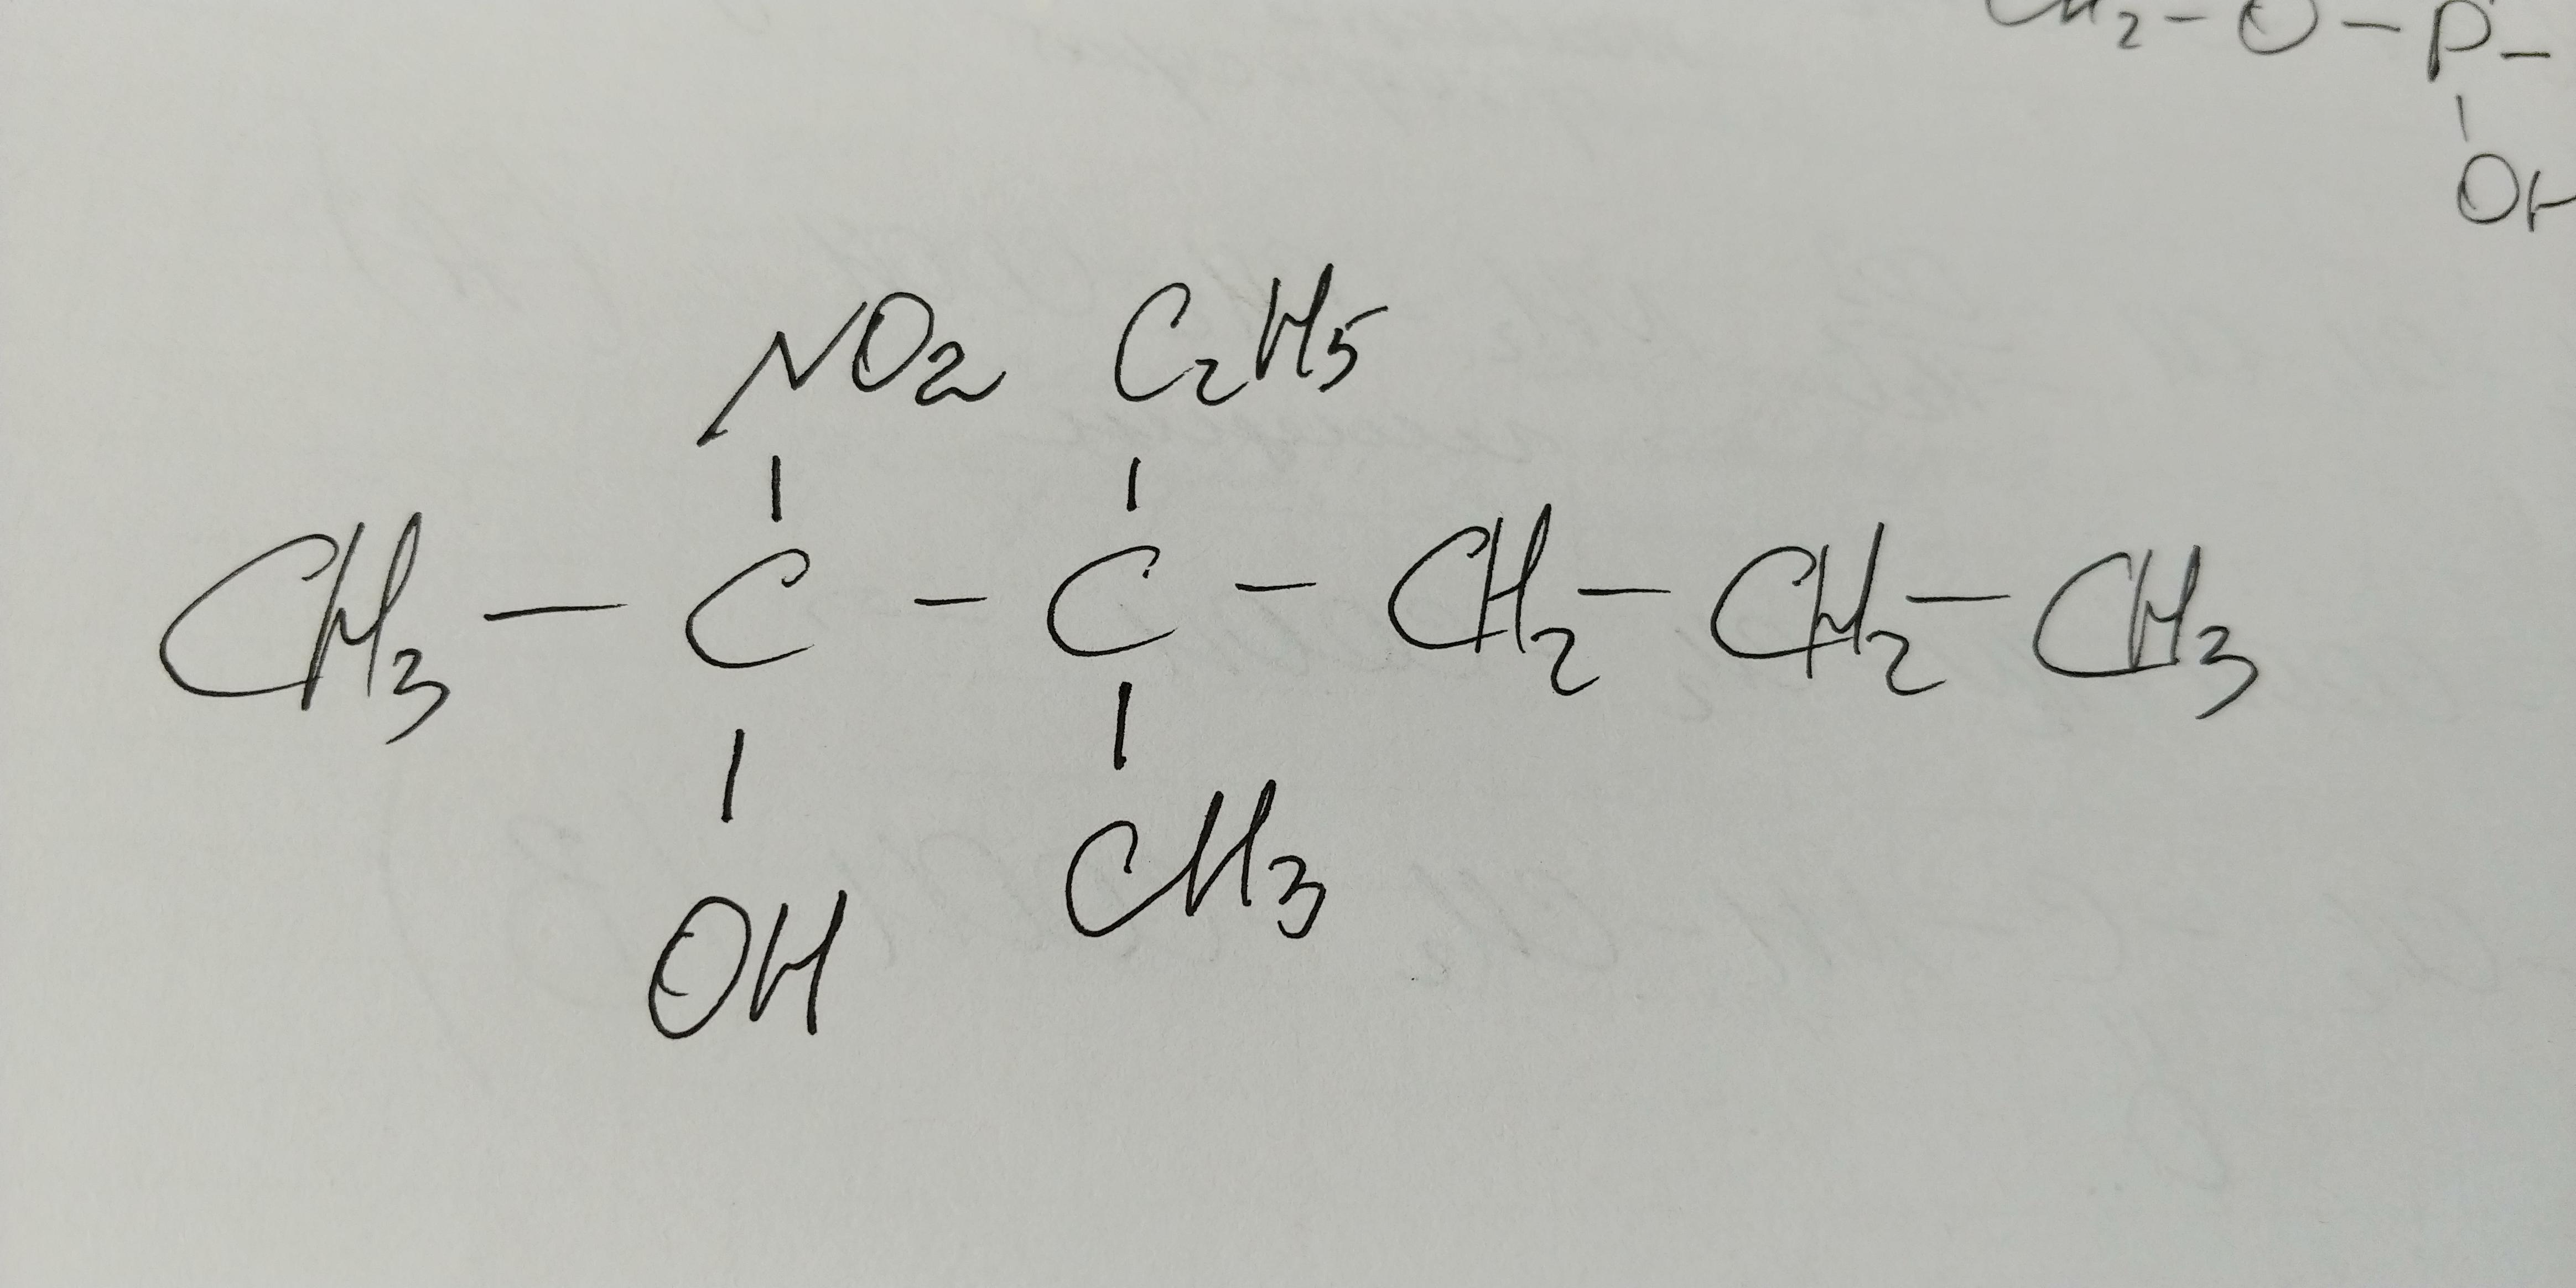 CH₂-O-P-
OH
NO₂ C₂H₅
CH₃-C-C-CH₂-CH₂-CH₃
OH CH₃